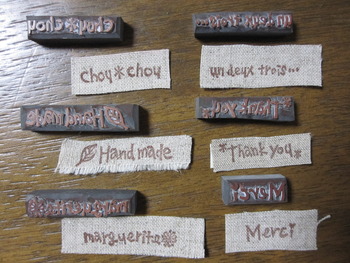 chou*chou
un deux trois...
Hand made
*Thank you*
marguerite
Merci